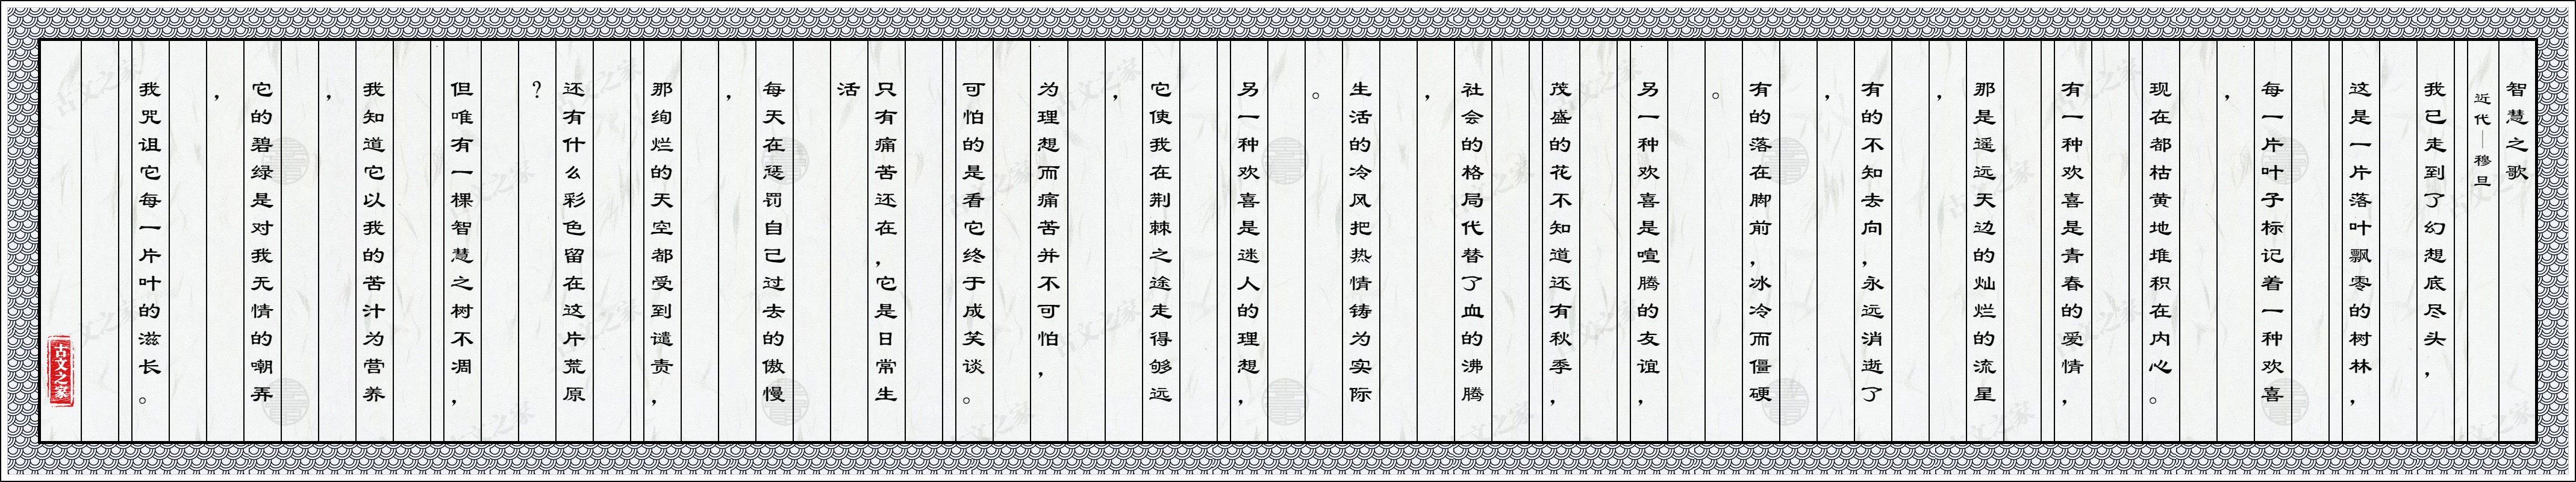 智慧之歌
近代—穆旦
我已走到了幻想底尽头，
这是一片落叶飘零的树林，
每一片叶子标记着一种欢喜
，
现在都枯黄地堆积在内心。
有一种欢喜是青春的爱情，
那是遥远天边的灿烂的流星
，
有的不知去向，永远消逝了
，
有的落在脚前，冰冷而僵硬
。
另一种欢喜是喧腾的友谊，
茂盛的花不知道还有秋季，
社会的格局代替了血的沸腾
，
生活的冷风把热情铸为实际
。
另一种欢喜是迷人的理想，
它使我在荆棘之途走得够远
，
为理想而痛苦并不可怕，
可怕的是看它终于成笑谈。
只有痛苦还在，它是日常生
活
每天在惩罚自己过去的傲慢
，
那绚烂的天空都受到谴责，
还有什么彩色留在这片荒原
？
但唯有一棵智慧之树不凋，
我知道它以我的苦汁为营养
，
它的碧绿是对我无情的嘲弄
，
我咒诅它每一片叶的滋长。
古文之家